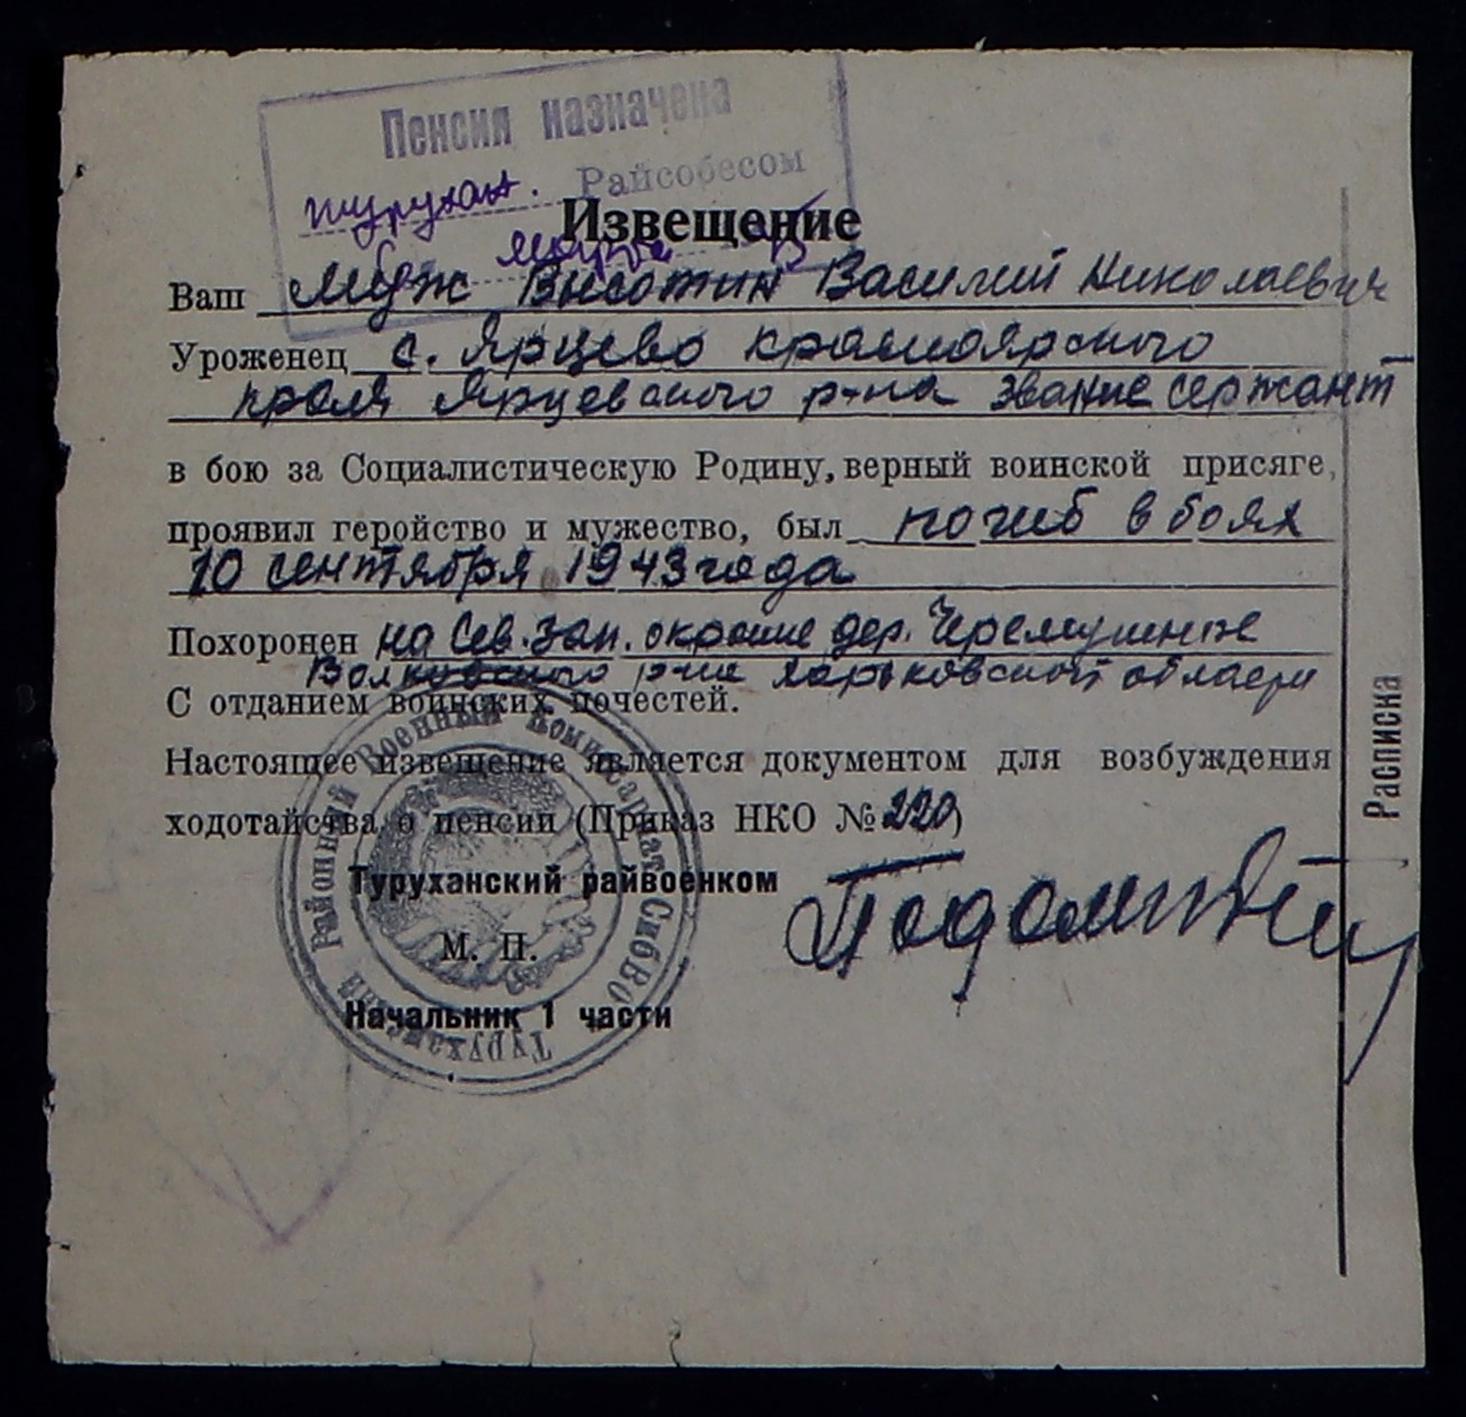 Пенсия назначена
турухан. Райсобесом
Извещение
Ваш муж Высотин Василий Николаевич
Уроженец с. Ярцево красноярского
края Ярцевского р-на звание сержант
в бою за Социалистическую Родину, верный воинской присяге,
проявил геройство и мужество, был погиб в боях
10 сентября 1943 года
Похоронен на Сев. зап. окраине дер. Черемушное
Волковского р-на Харьковской области
С отданием воинских почестей.
Настоящее извещение является документом для возбуждения
ходотайства о пенсии (Приказ НКО № 220)
Туруханский райвоенком
М. П.
Начальник 1 части
Туруханский Районный Военный Комиссариат СибВО
Расписка